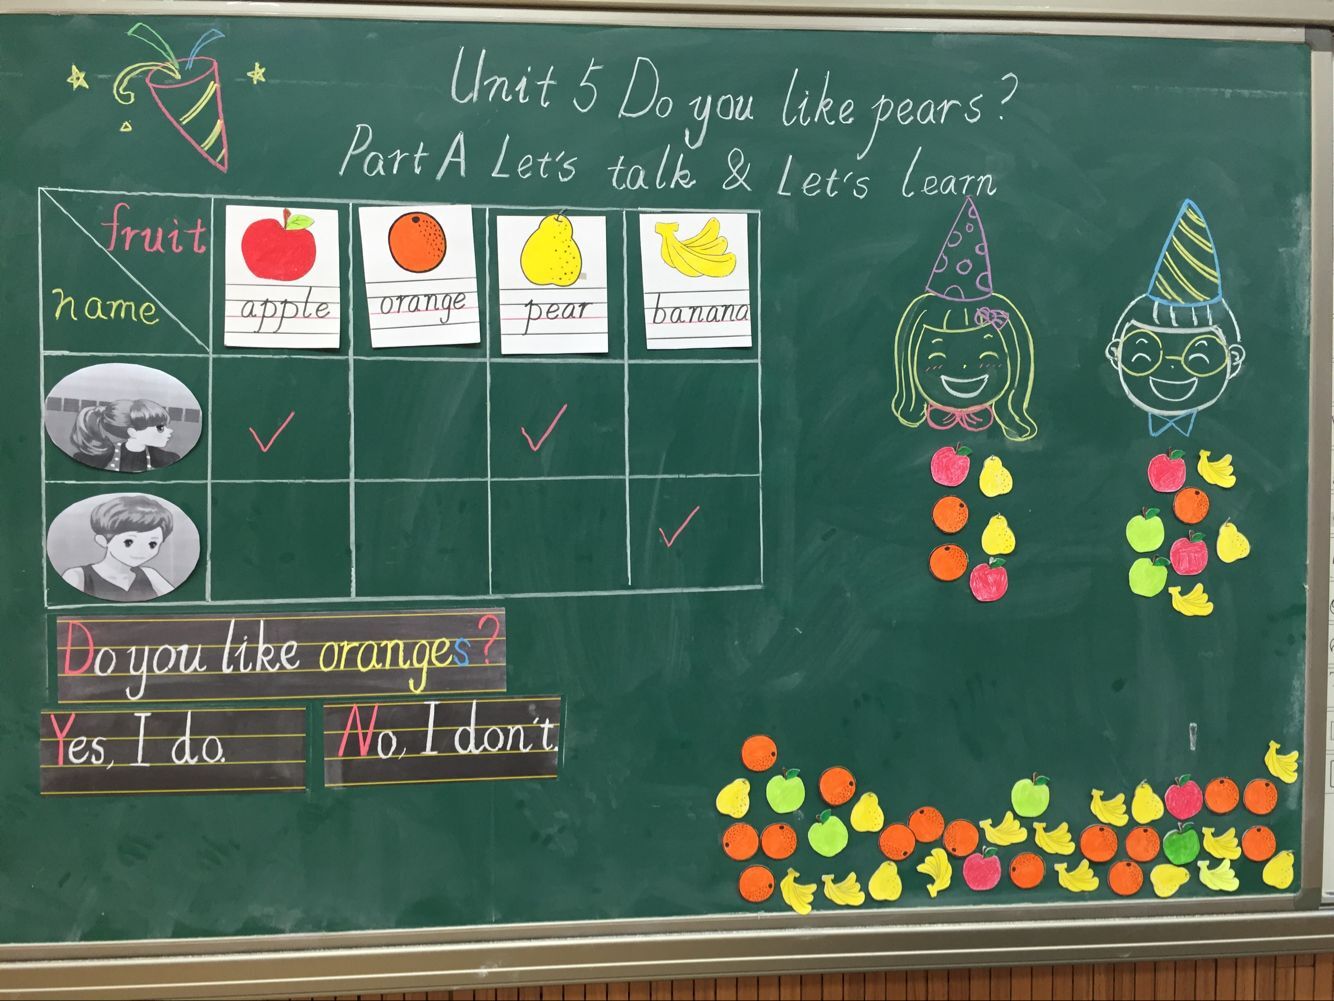 Unit 5 Do you like pears?
Part A Let's talk & Let's learn
fruit
name
apple
orange
pear
banana
Do you like oranges?
Yes, I do.
No, I don't.